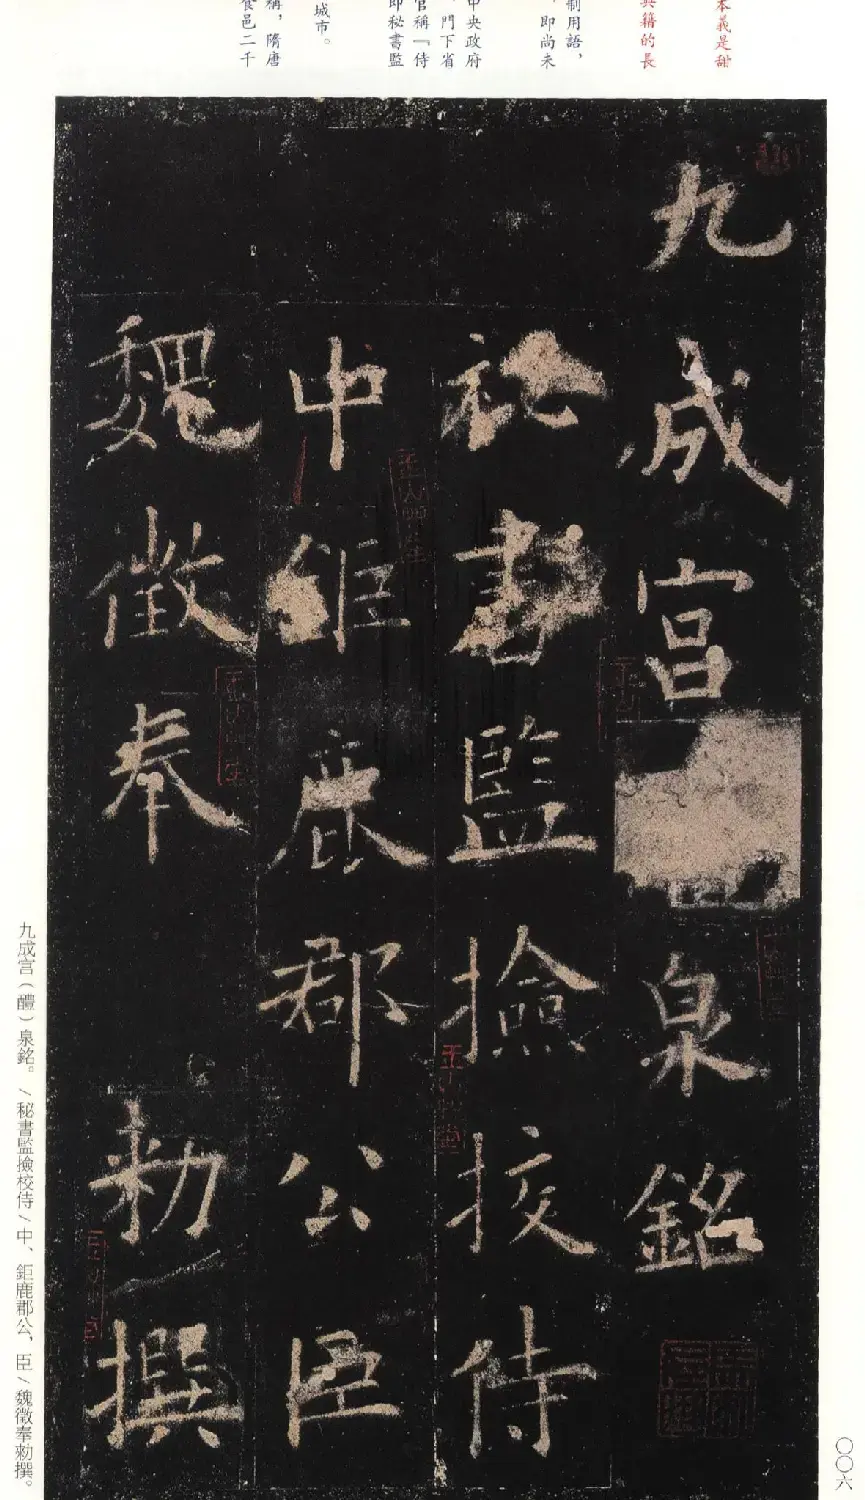 本義是甜
典籍的長
制用語，
，即尚未
中央政府
，門下省
官稱『侍
即秘書監
城市。
稱，隋唐
食邑二千
九成宮泉銘
秘書監撿挍侍
中鉅鹿郡公臣
魏徵奉勑撰
九成宮（醴）泉銘。／秘書監撿校侍／中、鉅鹿郡公，臣／魏徵奉勑撰。
〇〇六